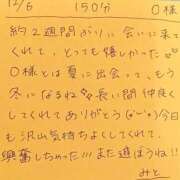 12/6 150分 O様
約2週間ぶりに会いに来て
くれて、とっても嬉しかった
O様とは夏に出会って、もう
冬になるね 長い間仲良く
してくれてありがとう(˙ᵕ˙)今日
も沢山気持ちよくしてくれて、
興奮しちゃった!!!また遊ぼうね!!
みと